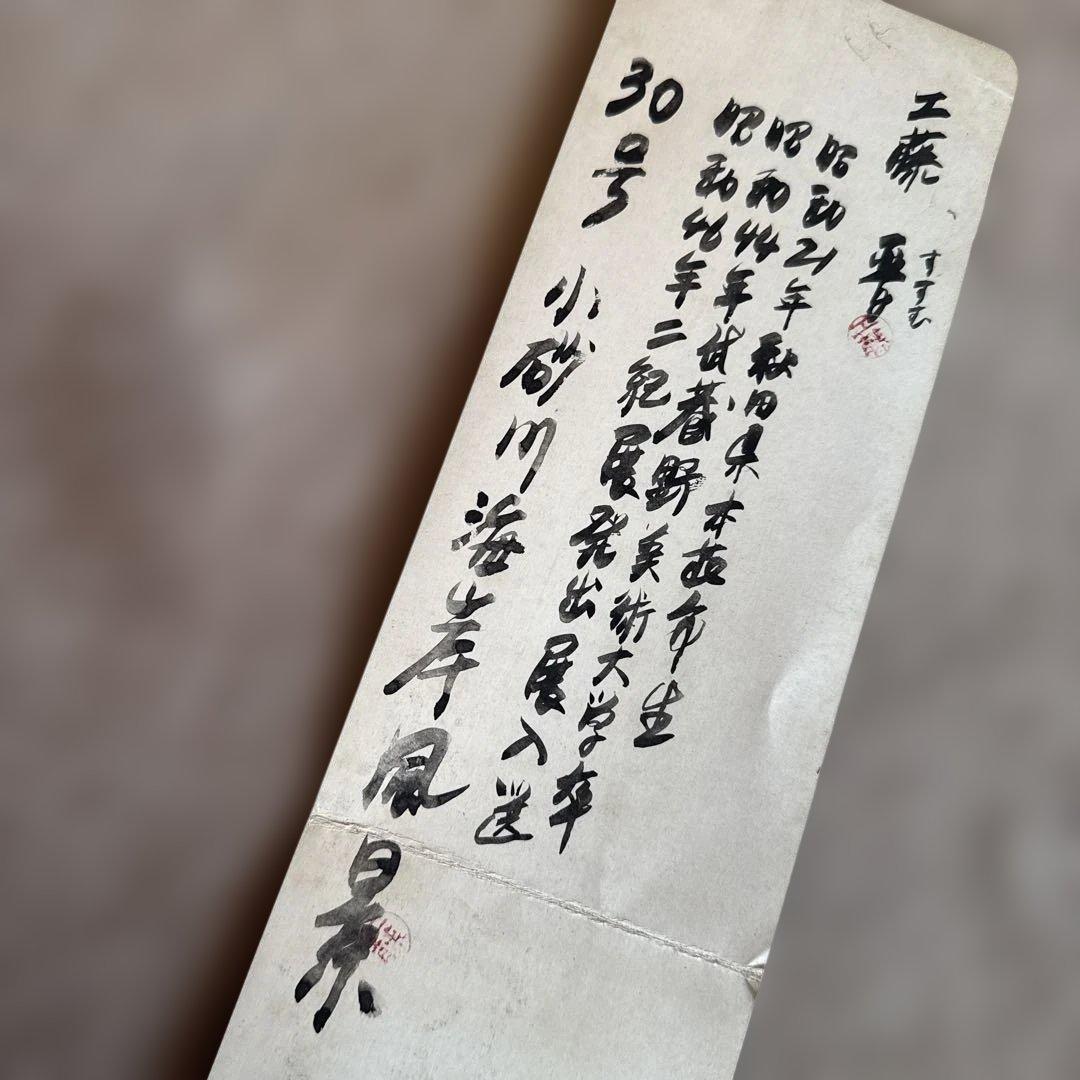 工藤 晋
すすむ
昭和21年 秋田県本荘市生
昭和44年武蔵野美術大学卒
昭和46年二紀展発出展入選
30号 小砂川海岸風景